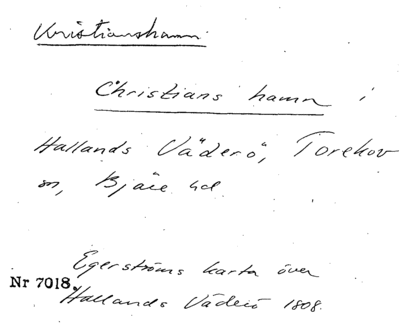 Kristianshamn
Christians hamn i
Hallands Väderö, Torekov
sn, Bjäre hd
Egerströms karta över
Nr 7018.
Hallands Väderö 1808.